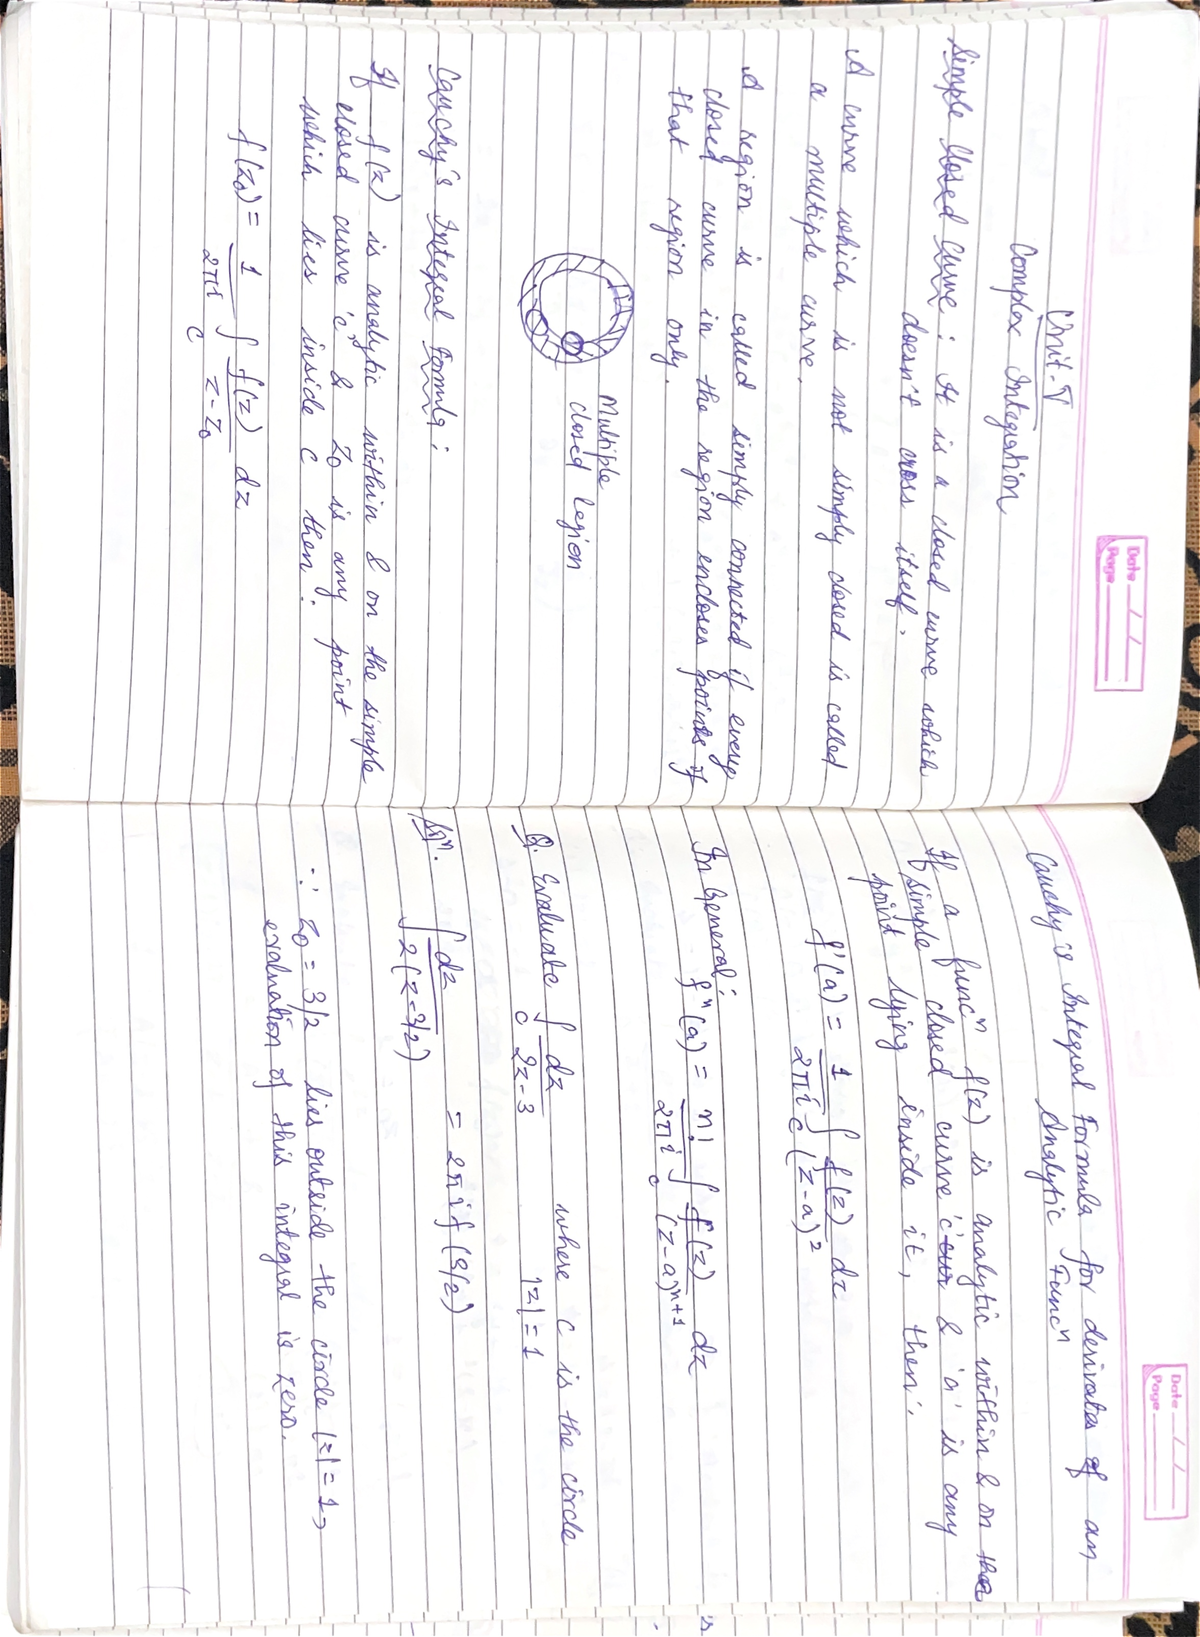 Date / /
Page
Unit-V
Complex Integration
Simple Closed Curve : It is a closed curve which
doesn't cross itself.
A curve which is not simply closed is called
a multiple curve.
A region is called simply connected if every
closed curve in the region encloses points of
that region only.
Multiple
closed region
Cauchy's Integral Formula :
If f(z) is analytic within & on the simple
closed curve 'c' & z₀ is any point
which lies inside C then :
f(z₀) = 1/2πi ∫_C f(z)/z-z₀ dz
Date / /
Page
Cauchy's Integral Formula for derivates of an
Analytic Funcⁿ
If a funcⁿ f(z) is analytic within & on the
simple closed curve 'c' & 'a' is any
point lying inside it, then :
f'(a) = 1/2πi ∫_C f(z)/(z-a)² dz
In General :
fⁿ(a) = n!/2πi ∫_C f(z)/(z-a)ⁿ⁺¹ dz
Q. Evaluate ∫_C dz/2z-3 where C is the circle
|z| = 1
Solⁿ. ∫ dz/2(z-3/2) = 2πi f(3/2)
∵ z₀ = 3/2 lies outside the circle |z| = 1 →
evaluation of this integral is zero.